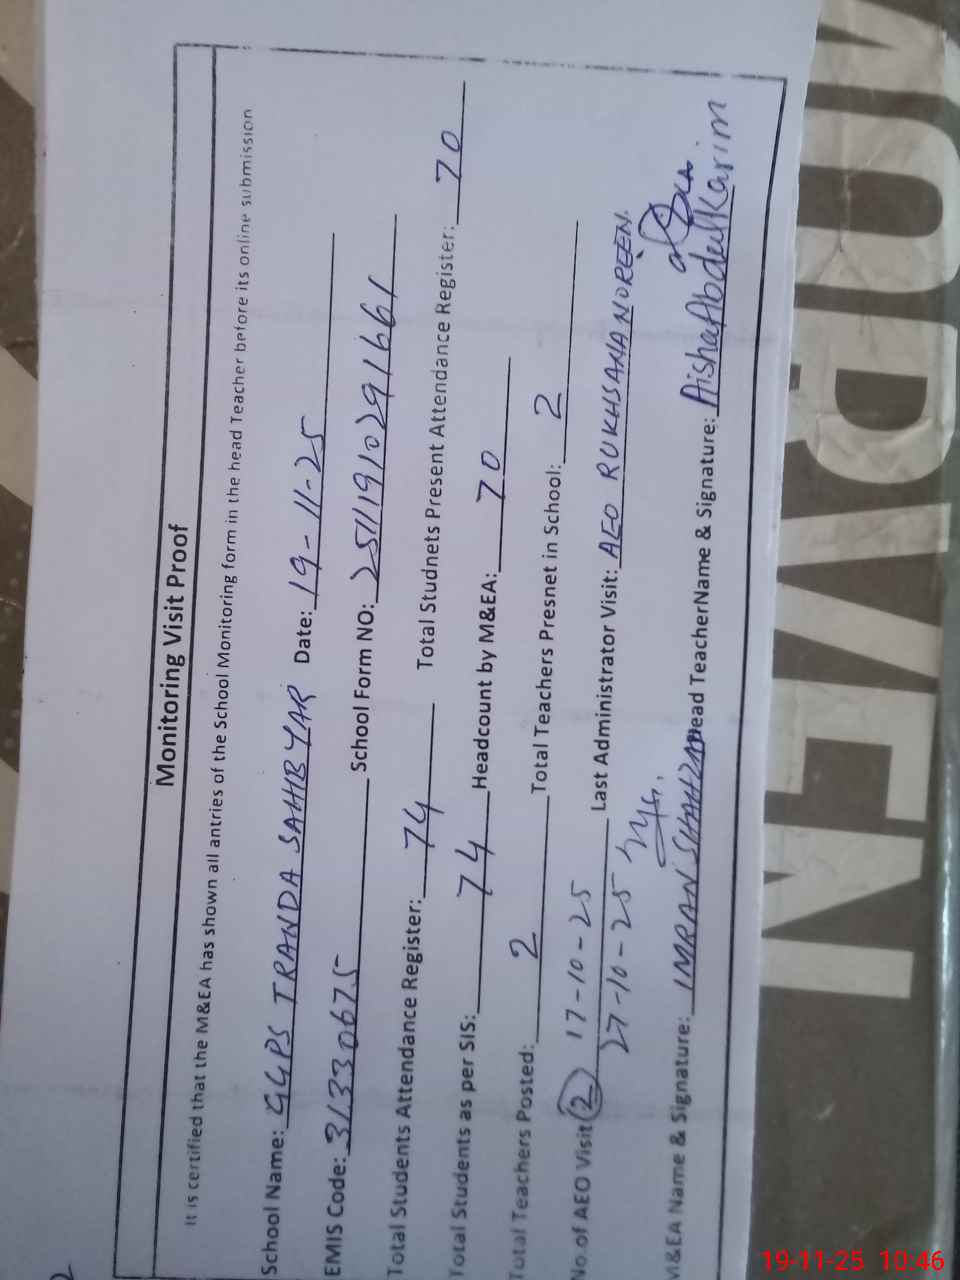 Monitoring Visit Proof
It is certified that the M&EA has shown all antries of the School Monitoring form in the head Teacher before its online submission
School Name: GGPS TRANDA SAHIB YAR Date: 19-11-25
EMIS Code: 31330675 School Form NO: 251119102911661
Total Students Attendance Register: 74 Total Studnets Present Attendance Register: 70
Total Students as per SIS: 74 Headcount by M&EA: 70
Total Teachers Posted: 2 Total Teachers Presnet in School: 2
No.of AEO Visit 2 17-10-25 Last Administrator Visit: AEO RUKHSANA NOREEN.
27-10-25
M&EA Name & Signature: IMRAN SHAHZAD Head TeacherName & Signature: Aisha Abdul Karim
19-11-25 10:46